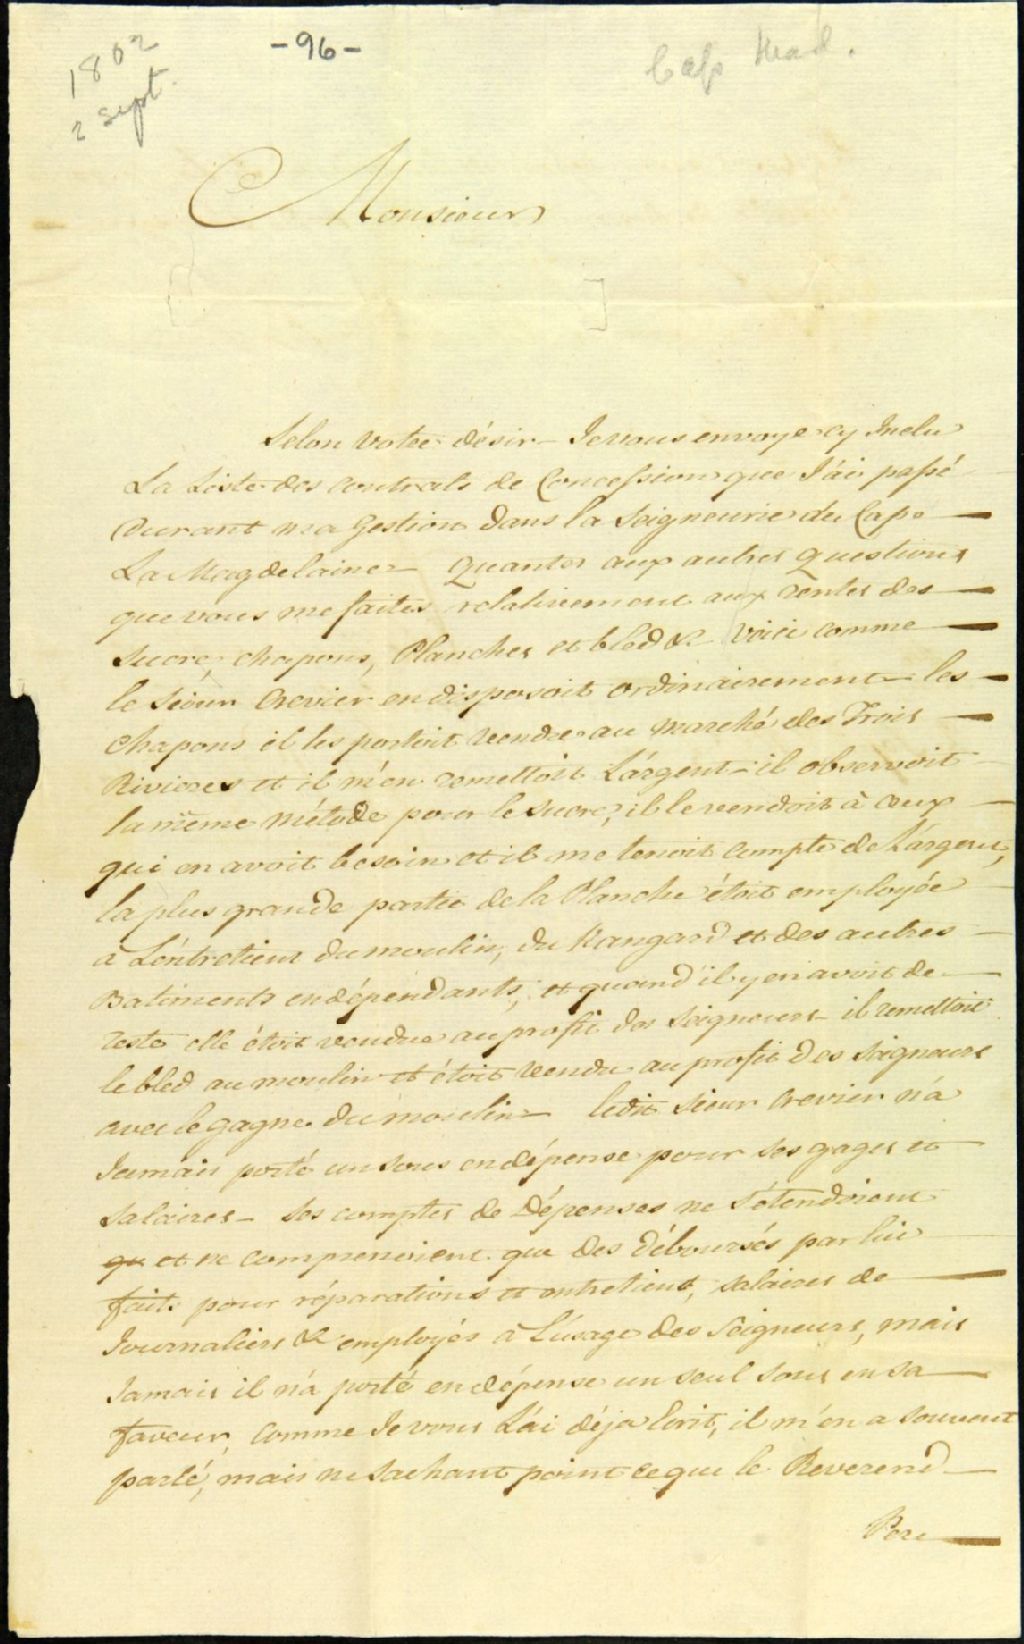 1802
2 sept.
-96-
Cap Mad.
Monsieur
Selon votre désir Je vous envoye cy Inclu
La Liste des contrats de Concession que J'ai passé
Durant ma Gestion dans la Seigneurie du Cap
La Magdelaine - Quantes aux autres questions
que vous me faites relativement aux rentes des
Sucre, chapons, Planches et bled &c voici comme
le Sieur Crevier en disposoit ordinairement - les
Chapons il les portoit vendre au Marché des Trois
Rivieres et il m'en remettoit L'argent - il observoit
la même métode pour le sucre; il le vendoit à ceux
qui en avoit besoin et il me tenoit compte de L'argent,
la plus grande partie de la Planche étoit employée
à L'entretient du moulin, du Hangard et des autres
Batiments en dépendants, et quand il y en avoit de
reste elle étoit vendue au profit des Seigneurs - il remettoit
le bled au moulin et étoit vendu au profit des Seigneurs
avec le gagne du moulin - ledit Sieur Crevier n'a
Jamais porté un sous en dépense pour ses gages et
Salaires - Ses comptes de Dépenses ne s'étendoient
qu et ne comprenoient que des Déboursés par lui
faits pour réparations et entretient, salaires de
Journaliers & employés à L'usage des Seigneurs, mais
Jamais il n'a porté en dépense un seul sous en sa
faveur, comme Je vous L'ai déja Ecrit, il m'en a souvent
parlé, mais ne sachant point ce que le Reverend
Pere